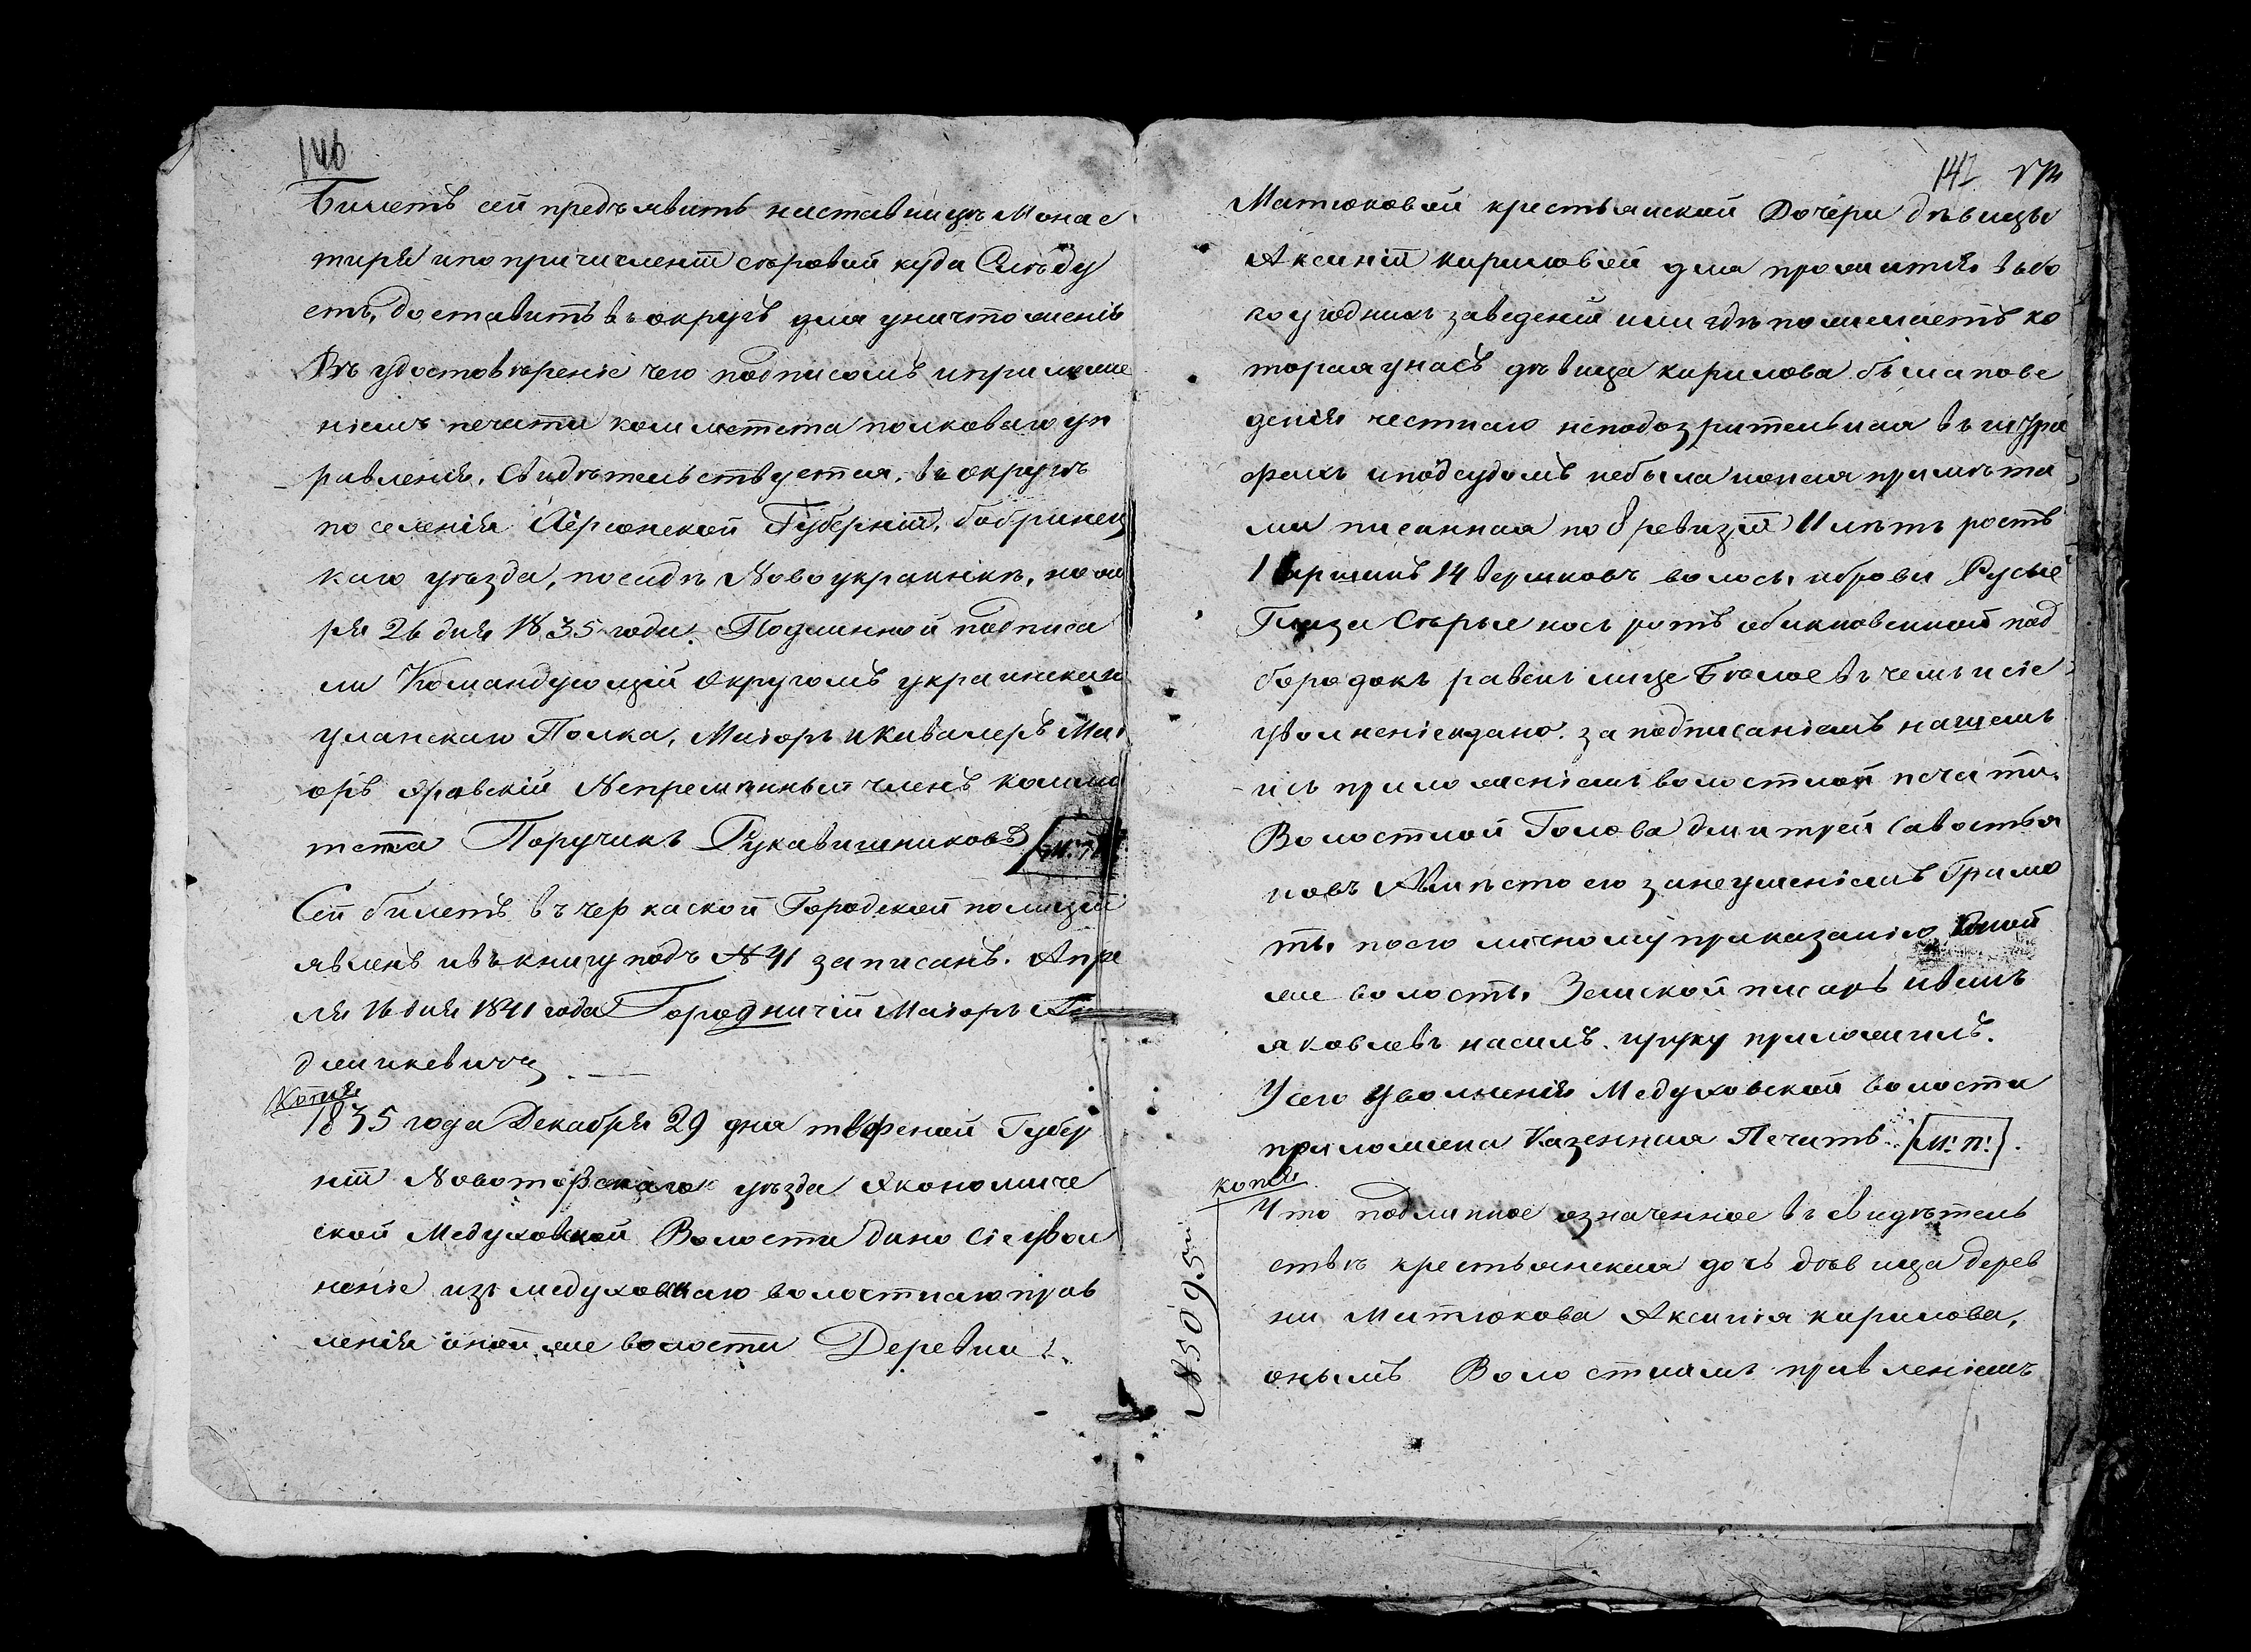 146
Билетъ сей предъявить наставницѣ Монас
тиря ипо причисленіи еѣровой куда Слѣду
етъ, доставить въ округъ для уничтоженія
Въ удостовѣреніе чего подписомъ иприложе
ніемъ печати коммитета полковаго уп
равленія, Свидѣтельствуется, въ округѣ
поселенія Херсонской Губерніи, бобринец
каго уѣзда, посадѣ Новоукраинкѣ, нояб
ря 26 дня 1835 года. Подлинной подписа
ли Командующій Округомъ украинскаго
уланскаго Полка, Маіоръ иКавалеръ Маі
оръ Непремѣнный членъ комми
тета Поручикъ Рукавишниковъ [М.П.]
Сей билетъ въ черкаской Городской полиціи
явленъ ивъкнигу подъ № 41 записанъ. Апре
ля 16 дня 1841 года Городничій Маіоръ

Копія
1835 года Декабря 29 дня твѣрской Губер
ніи Новоторжскаго уѣзда Якономиче
ской Медуховской Волости дано сіе увол
неніе изъ медуховскаго волостнаго прав
ленія оной же волости Деревни
147
Матюковой крестьянской Дочери дѣвицы
Аксиніи кириловой для прожитія въбо
гоугодныхъ заведеній или гдѣ пожелаетъ ко
торая унасъ дѣвица кирилова была пове
денія честнаго неподозрительная въ штра
фахъ иподсудомъ небыла ионая примѣта
ми писанная по 8 ревизіи 11 лѣтъ ростъ
1 аршинъ 14 вершковъ волосы иброви Русые
Глаза Сѣрые носъ ротъ обикновенной под
бородокъ равенъ лице Бѣлое въ чемъ исіе
уволненіе идано. за подписаніемъ нашемъ
исъ приложеніемъ волостной печати.
Волостной Голова дмитрей Савостья
новъ Авмѣсто его занеуменіемъ Грамо
ты поего личному приказанію Оной
же волости Земской писарь иванъ
яковлевъ насилъ. ируку приложилъ.
Усего уволненія Медуховской волости
приложена Казенная Печать. [М.П.].
копія
Что подлинное означенное въ свидѣтель
ствѣ крестьянская дочь дѣвица дерев
ни Матюкова Аксинія кирилова,
онымъ Волостнымъ правленіемъ